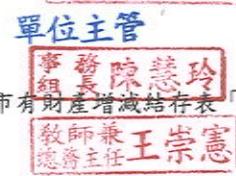 單位主管
事務組長 陳慧玲
市有財產增減結存表「
教師兼總務主任 王崇憲